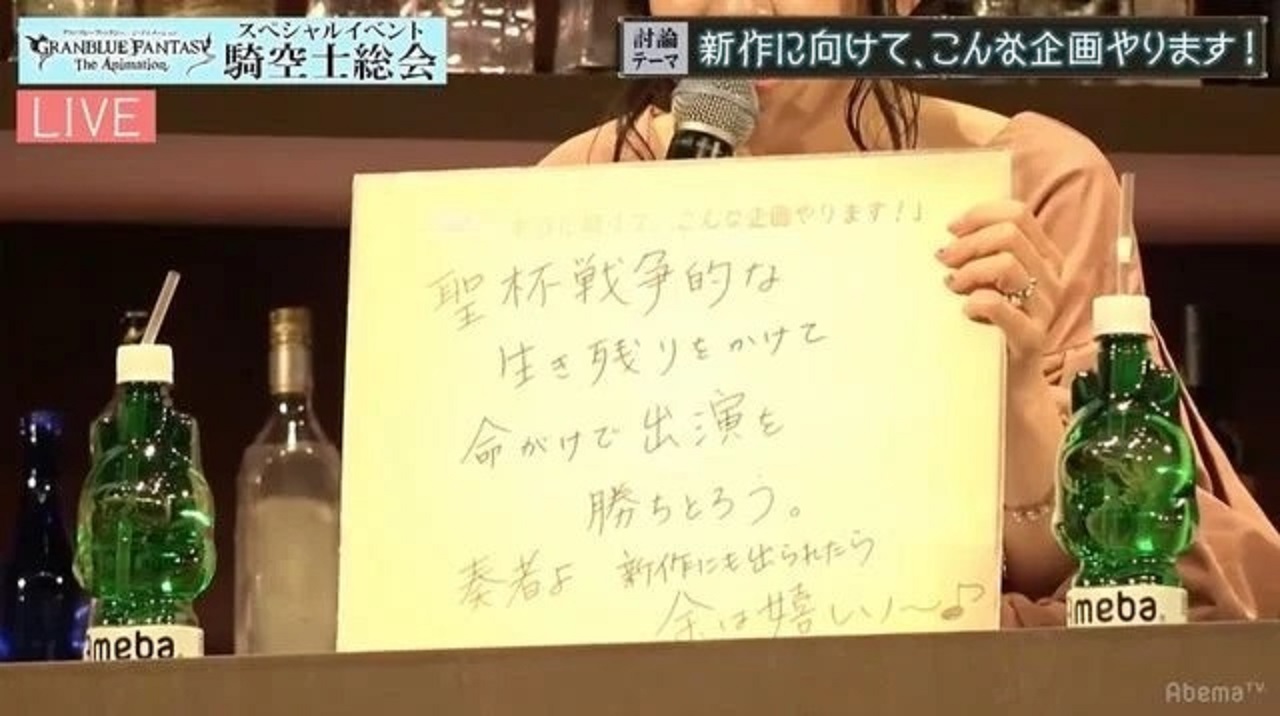 GRANBLUE FANTASY
The Animation
スペシャルイベント
騎空士総会
討論
テーマ
新作に向けて、こんな企画やります!
LIVE
こんな企画やります!」
聖杯戦争的な
生き残りをかけて
命がけで出演を
勝ちとろう。
奏者よ 新作にも出られたら
余は嬉しい〜♪
meba
meba
AbemaTV